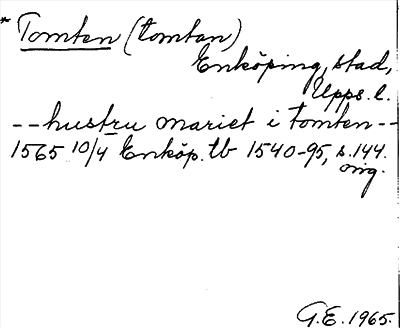 * Tomten (tomtan)
Enköping, stad,
Upps. l.
-- hustru mariet i tomten --
1565 10/4 Enköp. tb 1540-95, s. 144.
orig.
G.E. 1965.